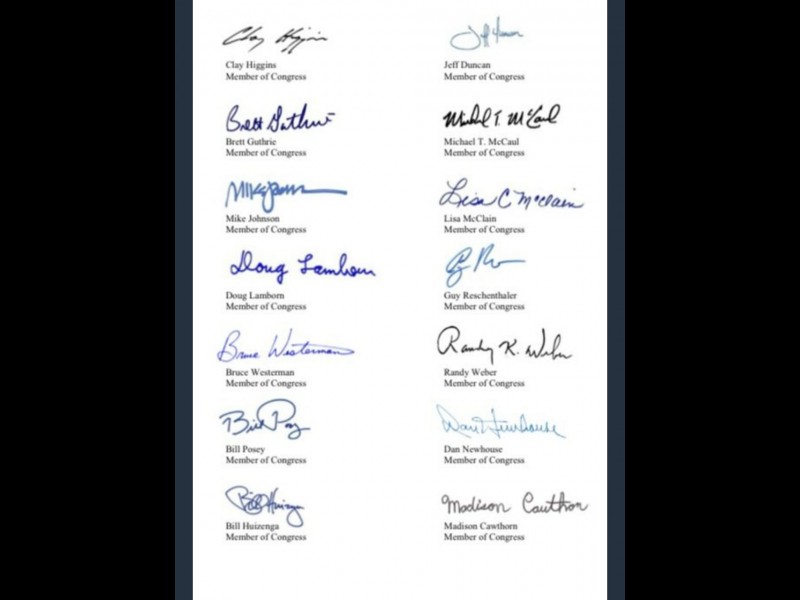 Clay Higgins Jeff Duncan
Clay Higgins Jeff Duncan
Member of Congress Member of Congress
Brett Guthrie Michael T. McCaul
Brett Guthrie Michael T. McCaul
Member of Congress Member of Congress
Mike Johnson Lisa C McClain
Mike Johnson Lisa McClain
Member of Congress Member of Congress
Doug Lamborn
Doug Lamborn Guy Reschenthaler
Member of Congress Member of Congress
Bruce Westerman Randy K. Weber
Bruce Westerman Randy Weber
Member of Congress Member of Congress
Bill Posey Dan Newhouse
Bill Posey Dan Newhouse
Member of Congress Member of Congress
Bill Huizenga Madison Cawthorn
Bill Huizenga Madison Cawthorn
Member of Congress Member of Congress